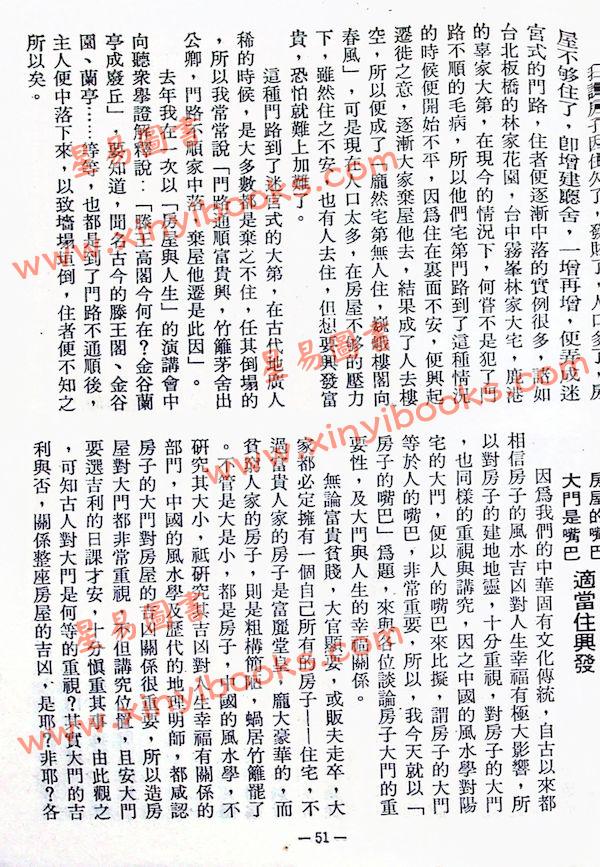 發財了，人口多了，房
屋不够住了，卽增建廳舍，一增再增，便弄成迷
宮式的門路，住者便逐漸中落的實例很多，諸如
台北板橋的林家花園，台中霧峯林家大宅，鹿港
的辜家大第，在現今的情況下，何嘗不是犯了門
路不順的毛病，所以他們宅第門路到了這種情況
的時候便開始不平，因爲住在裏面不安，便興起
遷徙之意，逐漸大家棄屋他去，結果成了人去樓
空，所以便成了「龐然宅第無人住，巍峨樓閣向
春風」，可是現在人口太多，在房屋不够的壓力
下，雖然住之不安，也有人去住，但想要興發富
貴，恐怕就難上加難了。
這種門路到了迷宮式的大第，在古代地廣人
稀的時候，是大多數都是棄之不住，任其倒塌的
，所以我常常說「門路通順富貴興，竹籬茅舍出
公卿，門路不順家中落，棄屋他遷是此因」。
去年我在一次以「房屋與人生」的演講會中
向聽衆舉證解釋說：「滕王高閣今何在？金谷蘭
亭成廢丘」，要知道，聞名古今的滕王閣、金谷
園、蘭亭……等等，也都是到了門路不通順後，
主人便中落下來，以致墻塌壁倒，住者便不知之
所以矣。
房屋的嘴巴
大門是嘴巴
適當住興發
因爲我們的中華固有文化傳統，自古以來都
相信房子的風水吉凶對人生幸福有極大影響，所
以對房子的建地地靈，十分重視，對房子的大門
，也同樣的重視與講究，因之中國的風水學對陽
宅的大門，便以人的嘴巴來比擬，謂房子的大門
等於人的嘴巴，非常重要，所以，我今天就以「
房子的嘴巴」爲題，來與各位談論房子大門的重
要性，及大門與人生的幸福關係。
無論富貴貧賤，大官顯要，或販夫走卒，大
家都必定擁有一個自己所有的房子——住宅，不
過富貴人家的房子是富麗堂皇，龐大豪華的，而
貧賤人家的房子，則是粗構簡陋，蝸居竹籬罷了
。不管是大是小，都是房子，中國的風水學，不
硏究其大小，祇硏究其吉凶對人生幸福有關係的
部門，中國的風水學及歷代的地理明師，都咸認
房子的大門對房屋的吉凶關係很重要，所以造房
屋對大門都非常重視，不但講究位置，且安大門
要選吉利的日課才安，十分愼重其事，由此觀之
，可知古人對大門是何等的重視？其實大門的吉
利與否，關係整座房屋的吉凶，是耶？非耶？各
—51—
星易圖書
www.xinyibooks.com
星易圖書
www.xinyibooks.com
星易圖書
www.xinyibooks.com
星易圖書
www.xinyibooks.com